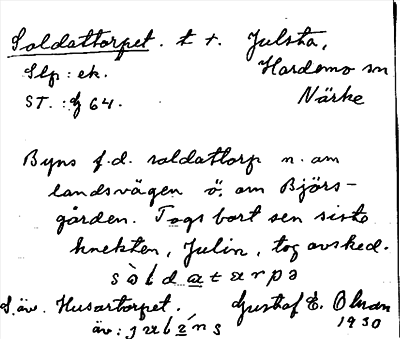 Soldattorpet. t t. Julsta,
Slp: ek. Hardemo sn
ST.: 64. Närke
Byns f.d. soldattorp n. om
landsvägen ö. om Björs-
gården. Togs bort sen sista
knekten, Julin, tog avsked.
S. äv. Husartorpet. Gustaf E. Ohman
äv.: 1930